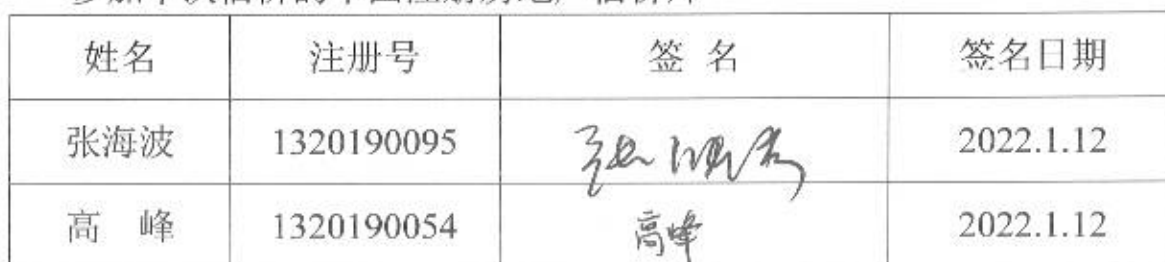 姓名 注册号 签 名 签名日期
张海波 1320190095 张海波 2022.1.12
高 峰 1320190054 高峰 2022.1.12